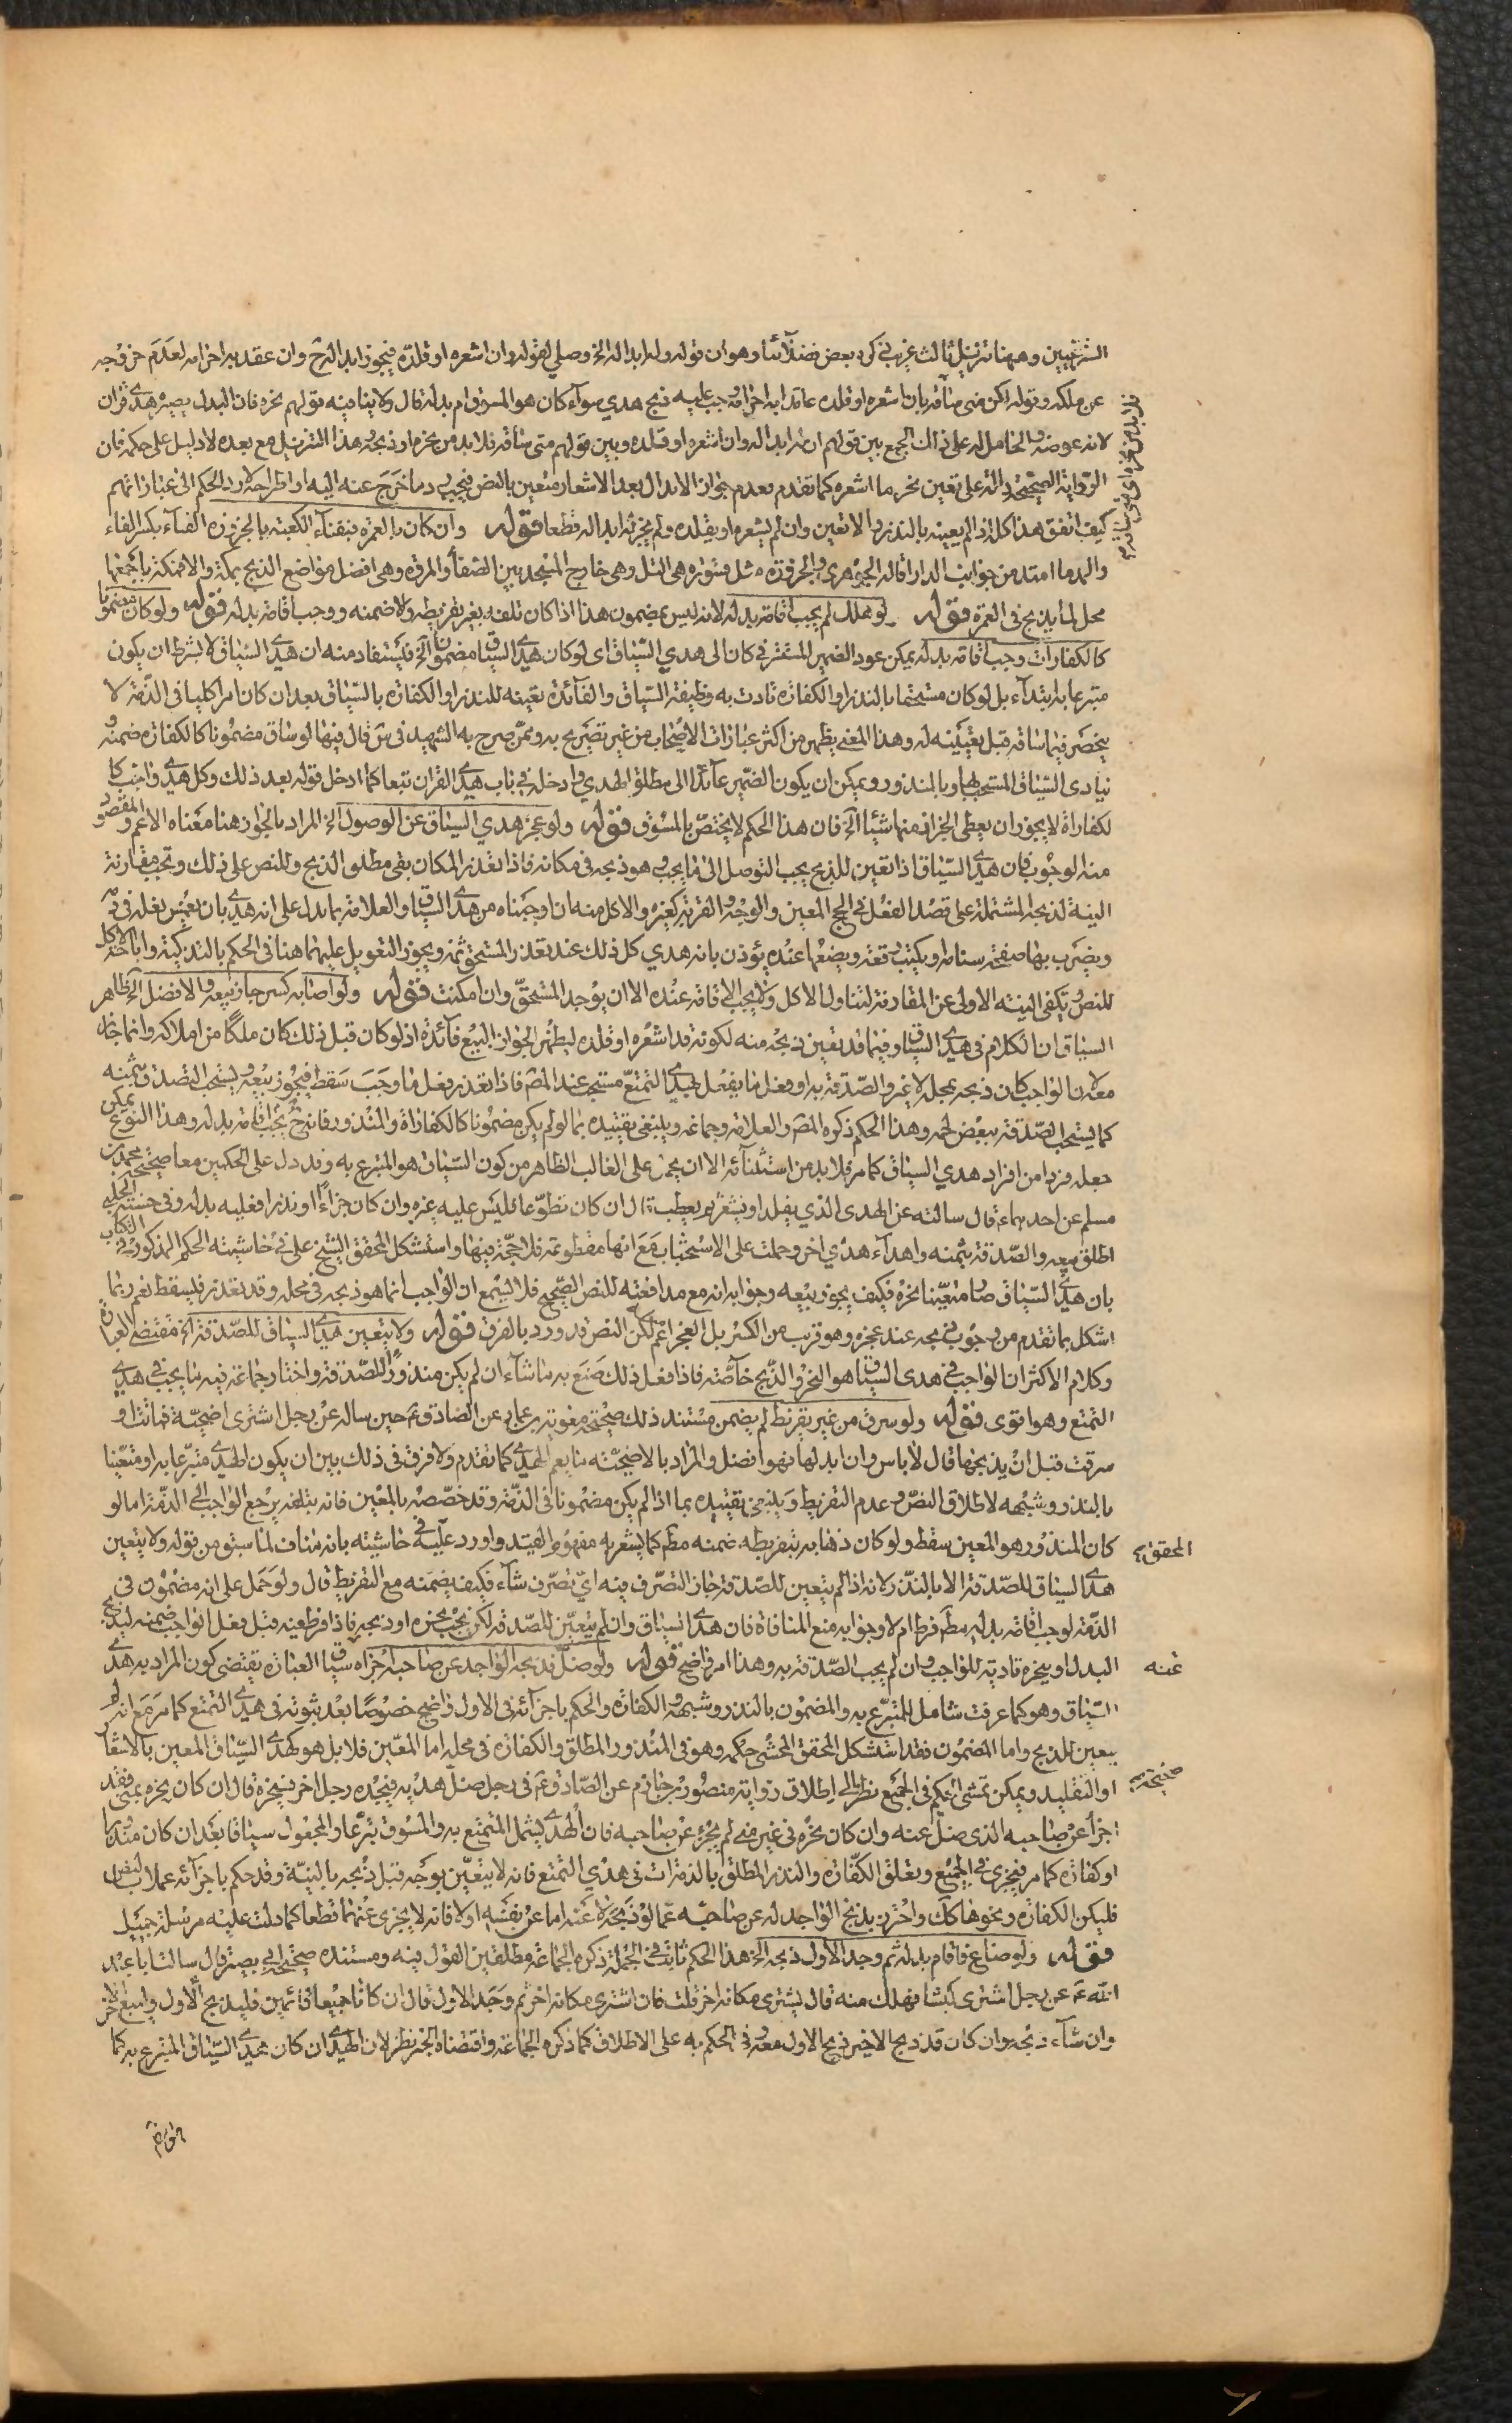 الشرعيين وههنا تنزيل ثالث غريب ذكره بعض فضلائنا وهو ان قوله وله ابداله الخ وصلي لقوله وان اشعره او قلده فيجوز ابداله ح وان عقد به احرامه لعدم خروجه
عن ملكه وقوله لكن متى ساقه بان اشعره او قلده عاقدا به احرامه وجب عليه ذبح هدي سواء كان هو المسوق ام بدله قال ولا ينافيه قولهم نحره فان البدل يصير هدي قران
لانه عوضه والحامل له على ذلك الجمع بين قولهم ان له ابداله وان اشعره او قلده وبين قولهم متى ساقه فلا بد من نحره او ذبحه وهذا التنزيل مع بعده لا دليل على حكمه فان
الرواية الصحيحة دالة على تعين نحر ما اشعره كما تقدم فعدم جواز الابدال بعد الاشعار متعين بالنص فيجب رد ما خرج عنه اليه او اطراحه لا رد الحكم الى عباراتهم
كيف اتفق هذا كله اذا لم يعينه بالنذر والا تعين وان لم يشعره او يقلده ولم يجز له ابداله قطعا قوله وان كان بالعمرة فبفناء الكعبة بالحزورة الفناء بكسر الفاء
والمد ما امتد من جوانب الدار قاله الجوهري والحزورة مثل قسورة هي التل وهي خارج المسجد بين الصفا والمروة وهي افضل مواضع الذبح بمكة والا فمكة باجمعها
محل لما يذبح في العمرة قوله لو هلك لم يجب اقامة بدله لانه ليس بمضمون هذا اذا كان تلفه بغير تفريطه والا ضمنه ووجب اقامة بدله قوله ولو كان مضمونا
كالكفارات وجب اقامة بدله يمكن عود الضمير المستتر في كان الى هدي السياق اى لو كان هدي السياق مضمونا الخ فيستفاد منه ان هدي السياق لا يشترط ان يكون
متبرعا به ابتداء بل لو كان مستحقا بالنذر او الكفارة تادت به وظيفة السياق والفائدة تعينه للنذر او الكفارة بالسياق بعد ان كان امرا كليا في الذمة لا
ينحصر فيما ساقه قبل تعيينه له وهذا المعنى يظهر من اكثر عبارات الاصحاب من غير تصريح به وممن صرح به الشهيد في س قال فيها لو ساق مضمونا كالكفارة ضمنه
فيتادى السياق المستحب بها وبالمنذور ويمكن ان يكون الضمير عائدا الى مطلق الهدي وادخله في باب هدي القران تبعا كما ادخل قوله بعد ذلك وكل هدي واجب كا
لكفارات لا يجوز ان يعطى الجزار منها شيئا الخ فان هذا الحكم لا يختص بالمسوق قوله ولو عجز هدي السياق عن الوصول الخ المراد بالجواز هنا معناه الاعم والمقصود
منه الوجوب فان هدي السياق اذا تعين للذبح يجب التوصل الى ما يجب وهو ذبحه في مكانه فاذا تعذر المكان بقى مطلق الذبح وللنص على ذلك وتجب مقارنة
النية لذبحه المشتملة على قصد الفعل في الحج المعين والوجه والقربة كغيره والاكل منه ان اوجبناه من هدي السياق والعلامة بما يدل على انه هدي بان يغمس نعله في دمه
ويضرب بها صفحة سنامه او يكتب رقعة ويضعها عنده يؤذن بانه هدي كل ذلك عند تعذر المستحق ثمة ويجوز التعويل عليهما هنا في الحكم بالتذكية واباحة الاكل
للنص وتكفي النية الاولى عن المقارنة لتناول الاكل ولا يجب الاقامة عنده الا ان يوجد المستحق وان امكنت قوله ولو اصابه كسر جاز بيعه والافضل الخ ظاهر
السياق ان الكلام في هدي السياق وفيما قد تعين ذبحه منه لكونه قد اشعره او قلده ليظهر لجواز البيع فائدة اذ لو كان قبل ذلك كان ملكا من املاكه وانما جاز
معه لان الواجب كان ذبحه بمحله لا غير والصدقة به او فعل ما يفعل بهدي التمتع مستحب عند المص فاذا تعذر فعل ما وجب سقط فيجوز بيعه ويستحب التصدق بثمنه
كما يستحب الصدقة ببعض لحمه وهذا الحكم ذكره المص والعلامة وجماعة وينبغي تقييده بما لو لم يكن مضمونا كالكفارات والمنذور فانه ح يجب اقامة بدله وهذا النوع يمكن
جعله فردا من افراد هدي السياق كما مر فلا بد من استثنائه الا ان يحمل على الغالب الظاهر من كون السياق هو المتبرع به وقد دل على الحكمين معا صحيحة محمد بن
مسلم عن احدهما ع قال سالته عن الهدي الذي يقلد او يشعر ثم يعطب قال ان كان تطوعا فليس عليه غيره وان كان جزاء او نذرا فعليه بدله وفي حسنة الحلبي
اطلق بيعه والصدقة بثمنه واهداء هدي اخر وحملت على الاستحباب مع انها مقطوعة فلا حجة فيها واستشكل المحقق الشيخ علي في حاشيته الحكم المذكور في الكتاب
بان هدي السياق صار متعينا نحره فكيف يجوز بيعه وجوابه انه مع مدافعته للنص الصحيح فلا يسمع ان الواجب انما هو ذبحه في محله وقد تعذر فيسقط نعم ربما
اشكل بما تقدم من وجوب ذبحه عند عجزه وهو قريب من الكسر بل العجز اعم لكن النص قد ورد بالفرق قوله ولا يتعين هدي السياق للصدقة الخ مقتضى العبارة
وكلام الاكثر ان الواجب في هدي السياق هو النحر والذبح خاصة فاذا فعل ذلك صنع به ما شاء ان لم يكن منذورا للصدقة واختار جماعة فيه ما يجب في هدي
التمتع وهو اقوى قوله ولو سرق من غير تفريط لم يضمن مستند ذلك صحيحة معوية بن عمار عن الصادق ع حين ساله عن رجل اشترى اضحية فماتت او
سرقت قبل ان يذبحها قال لا باس وان ابدلها فهو افضل والمراد بالاضحية ما يعم الهدي كما تقدم ولا فرق في ذلك بين ان يكون الهدي متبرعا به او متعينا
بالنذر وشبهه لاطلاق النص وعدم التفريط وينبغي تقييده بما اذا لم يكن مضمونا في الذمة وقد خصصه بالمعين فانه بتلفه يرجع الواجب الى الذمة اما لو
كان المنذور هو المعين سقط ولو كان ذهابه بتفريطه ضمنه مطم كما يشعر به مفهوم القيد واورد عليه في حاشيته بانه مناف لما سبق من قوله ولا يتعين
المحقق
هدي السياق للصدقة الا بالنذر لانه اذا لم يتعين للصدقة جاز التصرف فيه اي تصرف شاء فكيف يضمنه مع التفريط قال ولو حمل على انه مضمون في
الذمة لوجب اقامة بدله مطم فرط ام لا وجوابه منع المنافاة فان هدي السياق وان لم يتعين للصدقة لكن يجب نحره او ذبحه فاذا فرط فيه قبل فعل الواجب ضمنه ليذبح
البدل او ينحره تادية للواجب وان لم يجب الصدقة به وهذا امر واضح قوله ولو ضل فذبحه الواجد عن صاحبه اجزاه سياق العبارة يقتضى كون المراد به هدي
عنه
السياق وهو كما عرفت شامل للمتبرع به والمضمون بالنذر وشبهه والكفارة والحكم باجزائه في الاول واضح خصوصا بعد ثبوته في هدي التمتع كما مر مع انه لم
يتعين للذبح واما المضمون فقد استشكل المحقق المحشي حكمه وهو في المنذور المطلق والكفارة في محله اما المعين فلا بل هو كهدي السياق المعين بالاشعار
او التقليد ويمكن تمشي الحكم في الجميع نظرا الى اطلاق رواية منصور بن حازم عن الصادق ع في رجل ضل هديه فيجده رجل اخر فينحره قال ان كان نحره بمنى فقد
صحيحة
اجزأ عن صاحبه الذي ضل عنه وان كان نحره في غير منى لم يجز عن صاحبه فان الهدي يشمل المتمتع به والمسوق تبرعا والمجعول سياقا بعد ان كان منذورا
او كفارة كما مر فيجزي في الجميع وتعلق الكفارة والنذر المطلق بالذمة ات في هدي التمتع فانه لا يتعين بوجه قبل ذبحه بالنية وقد حكم باجزائه عملا بالنص
فليكن الكفارة ونحوها كك واحترز بذبح الواجد له عن صاحبه عما لو ذبحه لا عنه اما عن نفسه او لا فانه لا يجزي عنهما قطعا كما دلت عليه مرسلة جميل
قوله ولو ضاع فاقام بدله ثم وجد الاول ذبحه الخ هذا الحكم ثابت في الجملة ذكره الجماعة مطلقين القول فيه ومستنده صحيحة ابي بصير قال سالت ابا عبد
الله ع عن رجل اشترى كبشا فهلك منه قال يشترى مكانه اخر قلت فان اشترى مكانه اخر ثم وجد الاول قال ان كانا جميعا قائمين فليذبح الاول وليبع الاخر
وان شاء ذبحه وان كان قد ذبح الاخير ذبح الاول معه وفي الحكم به على الاطلاق كما ذكره الجماعة واقتضاه الخبر نظر لان الهدي ان كان هدي السياق المتبرع به كما